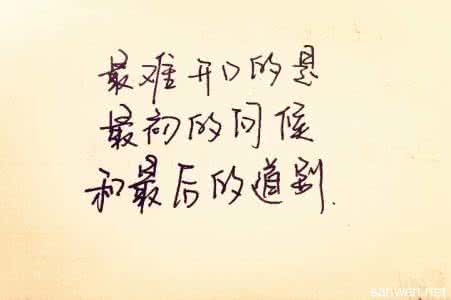 最难开口的是
最初的问候
和最后的道别.
sanwen.net